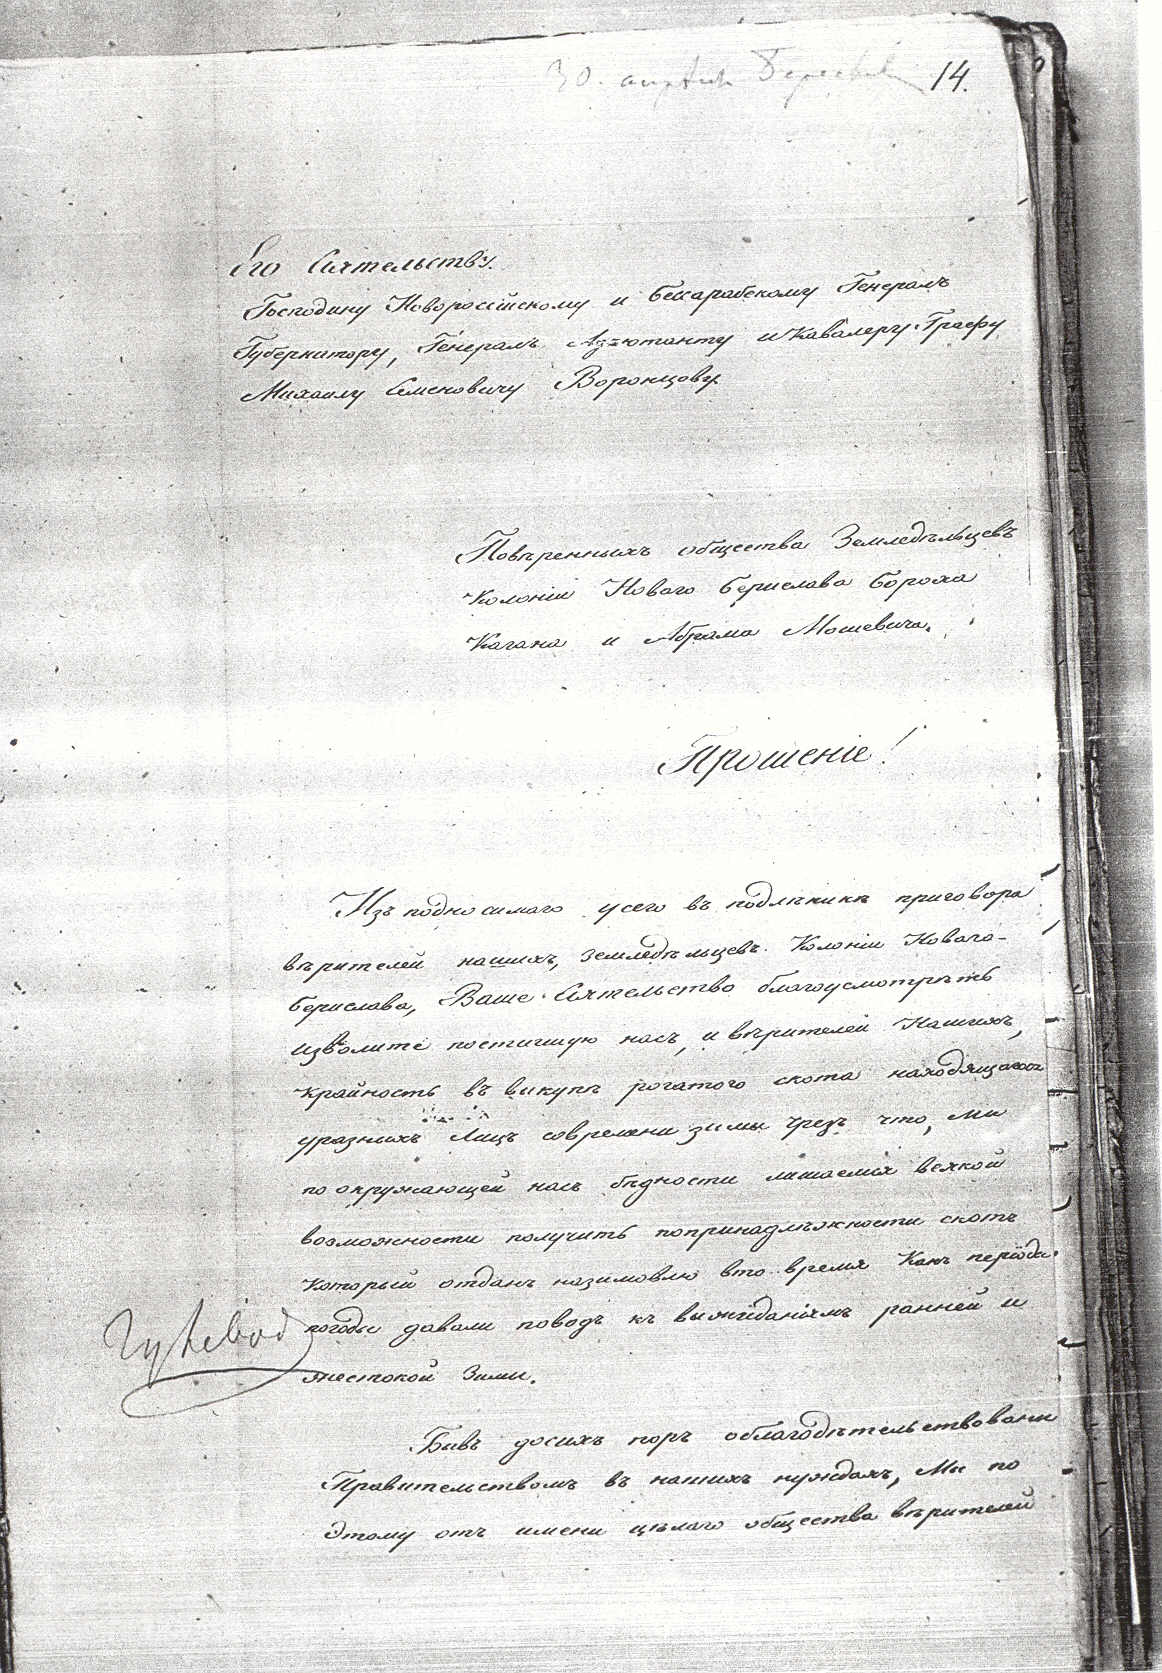 30. апрѣля 14.
Его Сіятельству.
Господину Новоросійскому и Бессарабскому Генералъ
Губернатору, Генералъ Адъютанту и Кавалеру Графу
Михаилу Семеновичу Воронцову.
Повѣренныхъ общества Земледѣльцевъ
Колоніи Новаго Берислава Бороха
Кагана и Абрама Мошевича.
Прошеніе!
Изъ подносимаго усего въ подлѣникѣ приговора
вѣрителей нашихъ, земледѣльцевъ Колоніи Новаго-
Берислава, Ваше Сіятельство благоусмотрѣть
изволите постигшую насъ, и вѣрителей Нашихъ,
крайность въ выкупѣ рогатого скота находящагося
уразныхъ Лицъ современи зимы чрезъ что, Ми
по окружающей насъ бѣдности лишаемся всякой
возможности получить попринадлѣжности скотъ
который отданъ назимовлю вто время Какъ періода
погоды давали поводъ къ выжиданіямъ ранней и
жестокой Зими.
Бивъ досихъ поръ облагодѣтельствовани
Правительствомъ въ нашихъ нуждахъ, Мы по
Этому отъ имени цѣлаго общества вѣрителей